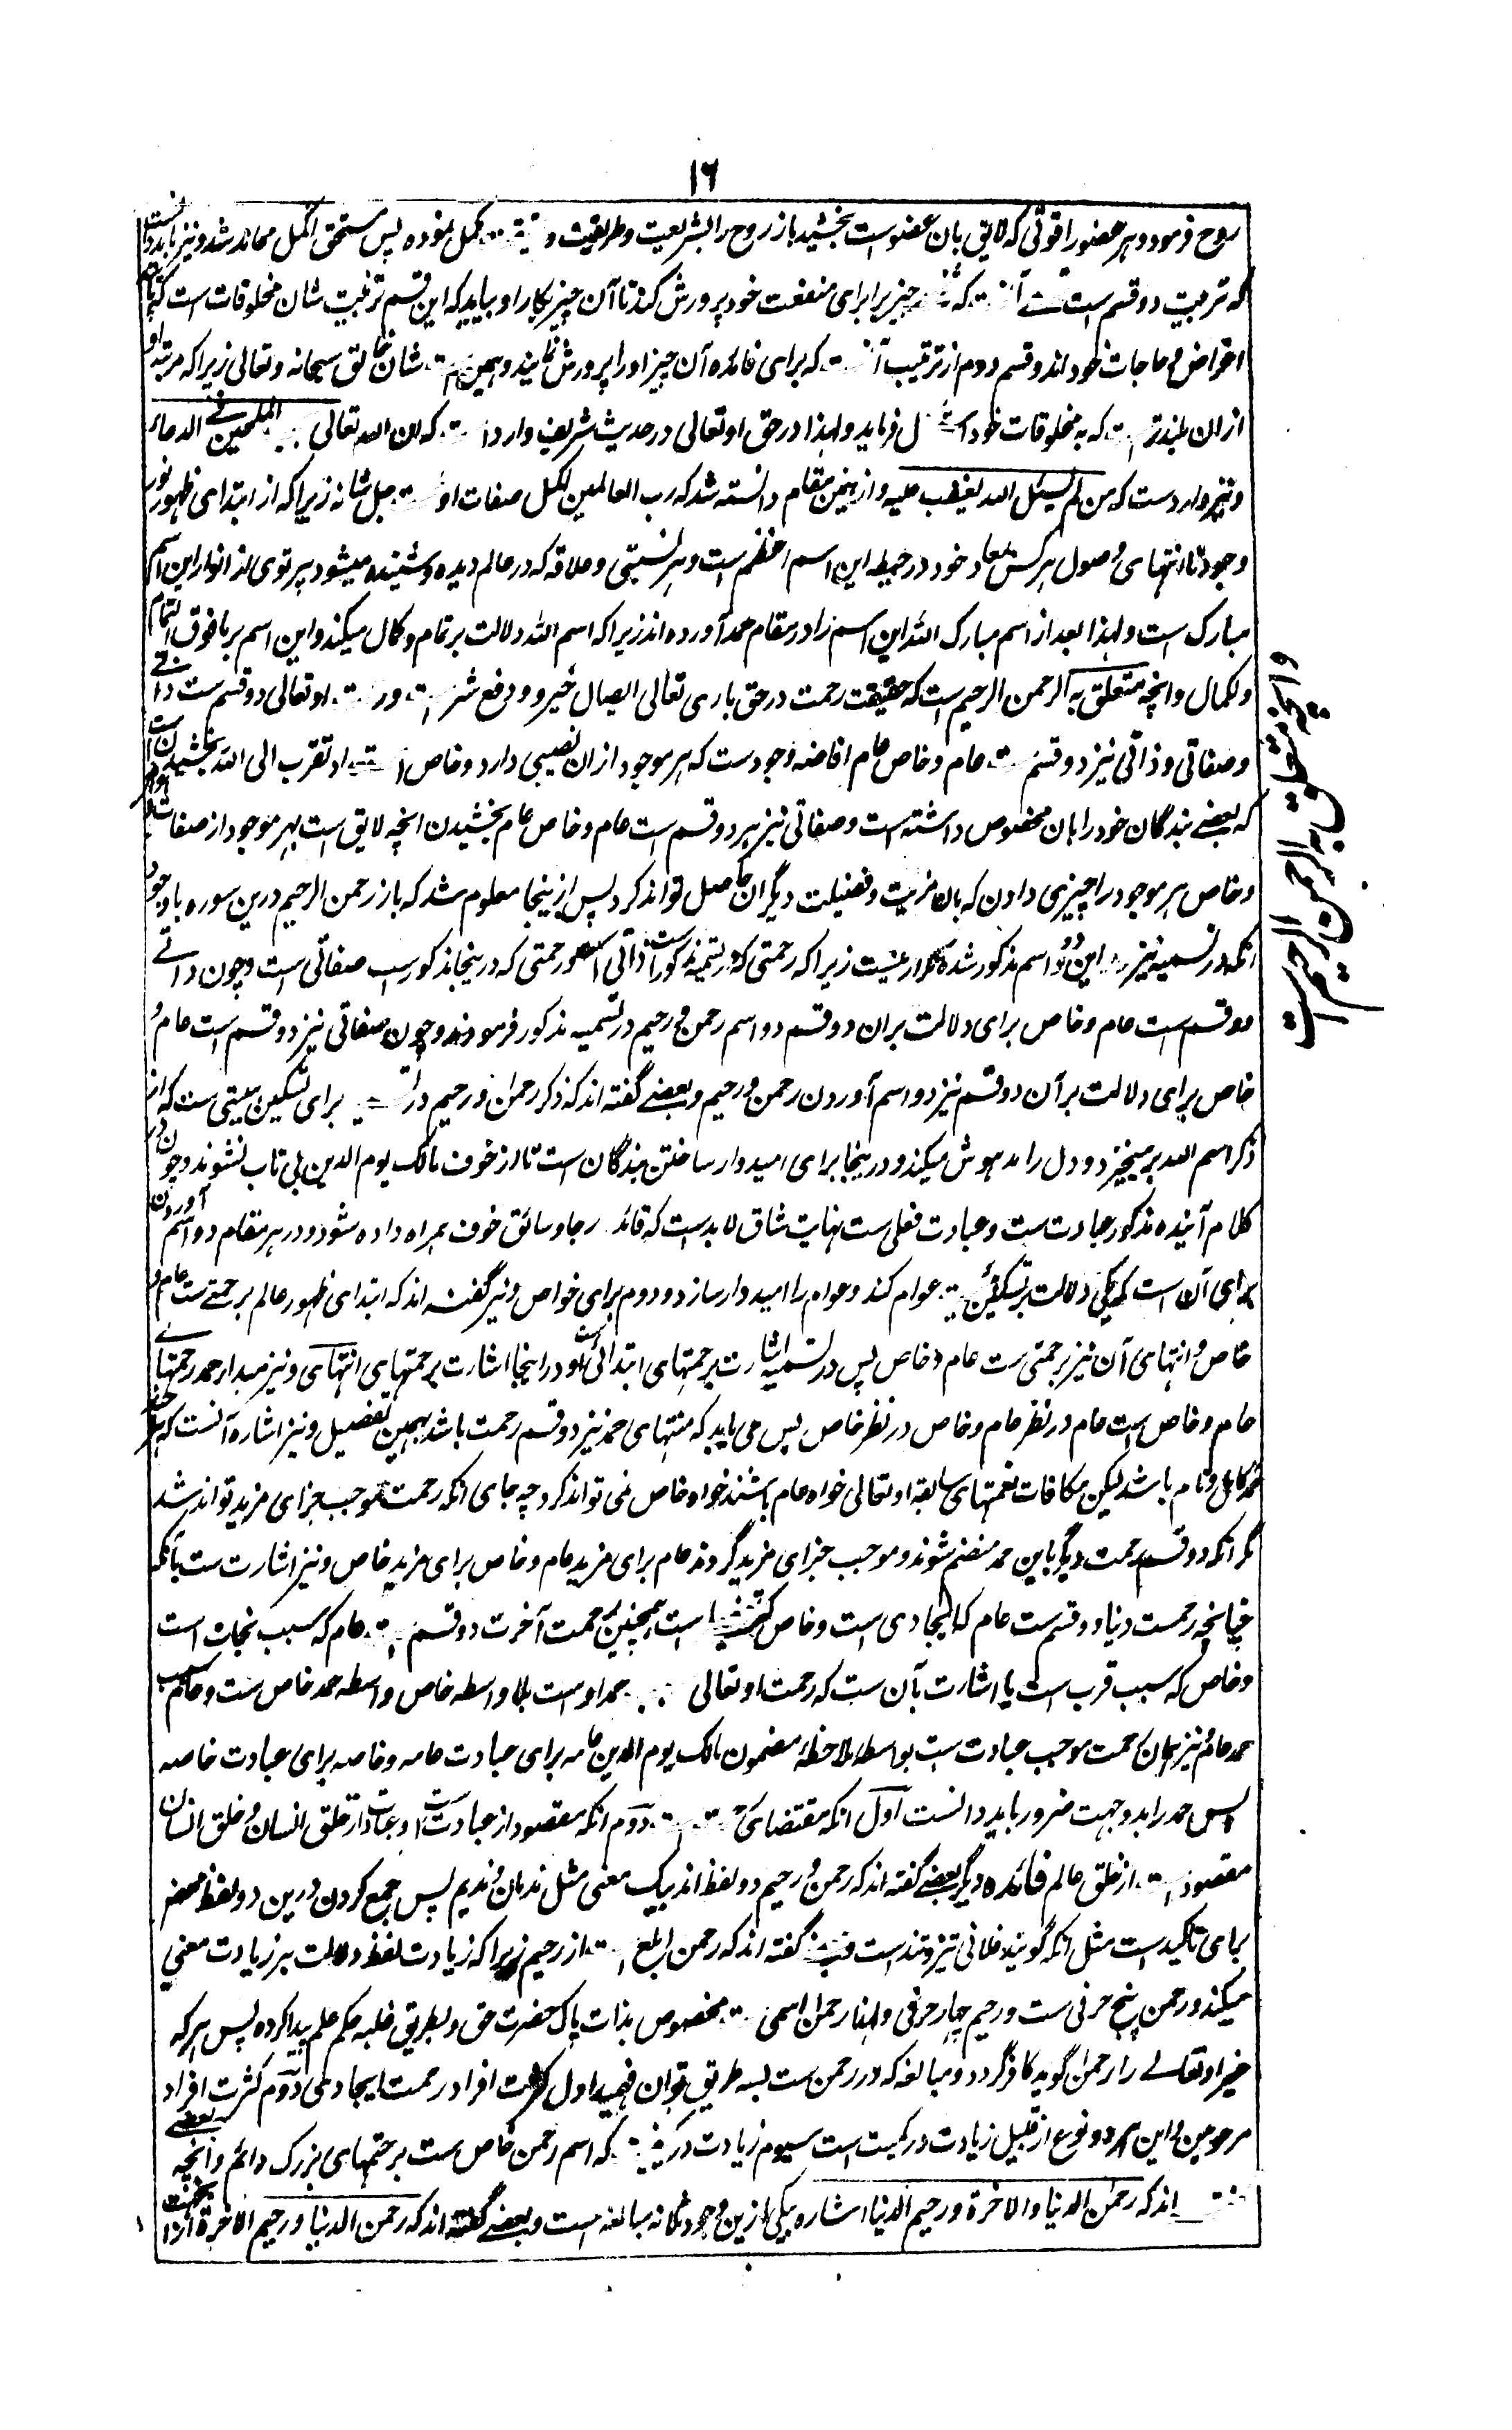 ١٦
روح فرمود و هر عضو را قوتی که لایق بان عضو است بخشید باز روح را بشریعت و طریقت و مکمل نموده پس مستحق اکمل محامد شد و نیز باید دانست
که تربیت دو قسم است که چیزیرا برای منفعت خود پرورش کند تا آن چیز بکار او بیاید که این قسم تربیت شان مخلوقات است که
اغراض و حاجات خود اند و قسم دوم از تربیت که برای فائده آن چیز او را پرورش نمایند و همین شان خالق سبحانه و تعالی زیرا که مرتبه او
ازان بلندتر است که به مخلوقات خود فرماید و لهذا در حق او تعالی در حدیث شریف وارد است که ان الله تعالی الملحین فی الدعاء
و نیز وارد ست که من لم یسئل الله یغضب علیه و ازینمقام دانسته شد که رب العالمین اکمل صفات او جل شانه زیرا که از ابتدای ظهور نور
وجود تا انتهای وصول هر کس بمعاد خود در حیطه این اسم اعظم است و هر نسبتی و علاقه که در عالم دیده و شنیده میشود پرتوی از انوار این اسم
مبارک است و لهذا بعد از اسم مبارک الله این اسم را در مقام حمد آورده اند زیرا که اسم الله دلالت بر تمام و کمال میکند و این اسم بر ما فوق التمام
و لکمال و انچه متعلق به الرحمن الرحیم است که حقیقت رحمت در حق باری تعالی ایصال خیر و دفع شر او تعالی دو قسم ست ذاتی
و صفاتی و ذاتی نیز دو قسم عام و خاص عام افاضه وجود ست که هر موجود ازان نصیبی دارد و خاص تقرب الی الله بخشیدن است
که بعضے بندگان خود را بان مخصوص داشته است و صفاتی نیز بر دو قسم است عام و خاص عام بخشیدن انچه لایق است بهر موجود از صفات
و خاص هر موجود را چیزی دادن که بان مزیت و فضیلت دیگران حاصل تواند کرد پس ازینجا معلوم شد که باز رحمن الرحیم درین سوره باوجود
انکه در تسمیه نیز این دو اسم مذکور شده تکرار نیست زیرا که رحمتی که در تسمیه مذکور است ذاتی است و رحمتی که درینجا مذکور است صفاتی است و چون ذاتے
دو قسم است عام و خاص برای دلالت بران دو قسم دو اسم رحمن و رحیم در تسمیه مذکور فرمودند و چون صفاتی نیز دو قسم است عام و
خاص برای دلالت بر آن دو قسم نیز دو اسم آوردن رحمن و رحیم و بعضے گفته اند که ذکر رحمان و رحیم در برای تسکین هیبتی ست که از
ذکر اسم الله برمیخیزد و دل را مدهوش میکند و درینجا برای امیدوار ساختن بندگان است تا از خوف مالک یوم الدین بی تاب نشوند و چون در
کلام آینده مذکور عبادت ست و عبادت فعلی ست نهایت شاق لابد است که قائد رجا و سائق خوف همراه داده شود و در هر مقام دو اسم آوردن
برای آن است که یکی دلالت بر تسکین عوام کند و عوام را امیدوار سازد و دوم برای خواص و نیز گفته اند که ابتدای ظهور عالم برحمتے ست عام و
خاص و انتهای آن نیز برحمتی ست عام و خاص پس در تسمیه اشارت برحمتهای ابتدائی است و در اینجا اشارت برحمتهای انتهای و نیز مبدا حمد رحمتهاے
عام و خاص است عام در نظر عام و خاص در نظر خاص پس می باید که منتهای حمد نیز دو قسم رحمت باشد بهمین تفضیل و نیز اشاره آنست که هر چند
حمد کامل و تام باشد لیکن مکافات نعمتهای سابقه او تعالی خواه عام باشند خواه خاص نمی تواند کرد چه جای انکه رحمت موجب جزای مزید تواند شد
مگر انکه دو قسم رحمت دیگر باین حمد منضم شوند و موجب جزای مزید گردند عام برای مزید عام و خاص برای مزید خاص و نیز اشارت ست بآنکه
چنانچه رحمت دنیا دو قسم ست عام که ایجادی است و خاص که است همچنین رحمت آخرت دو قسم عام که سبب نجات است
و خاص که سبب قرب است یا اشارت بآن ست که رحمت او تعالی حمد اوست بلاواسطه خاص واسطه حمد خاص ست و عام سبب
حمد عام و نیز همان رحمت موجب عبادت ست بواسطه ملاحظه مضمون مالک یوم الدین عامه برای عبادت عامه و خاصه برای عبادت خاصه
پس حمد را بدو جهت ضرور باید دانست اول انکه مقتضای دوم انکه مقصود از عبادت است و عبادت از خلق انسان و خلق انسان
مقصود از خلق عالم فائده دیگر بعضے گفته اند که رحمن و رحیم دو لفظ اند بیک معنی مثل ندمان و ندیم پس جمع کردن درین دو لفظ محض
برای تاکید است مثل انکه گویند فلانی تیز و تند است گفته اند که رحمن ابلغ از رحیم زیرا که زیادت لفظ دلالت بر زیادت معنی
میکند و رحمن پنج حرفی ست و رحیم چهار حرفی و لهذا رحمان اسمی مخصوص بذات پاک حضرت حق و بطریق غلبه حکم علم پیدا کرده پس هر که
غیر او تعالے را رحمان گوید کافر گردد و مبالغه که در رحمن ست بسه طریق توان فهمید اول کثرت افراد رحمت ایجادی دوم کثرت افراد
مرحومین و این هر دو نوع از قبیل زیادت در کمیت است سیوم زیادت در کیفیت که اسم رحمن خاص ست برحمتهای بزرگ دائم و انچه بعضے
گفته اند که رحمن الدنیا والاخرة و رحیم الدنیا اشاره بیکی ازین وجوه سه گانه مبالغه است و بعضے گفته اند که رحمن الدنیا و رحیم الاخرة
وانچه متعلق به الرحمن الرحیم است